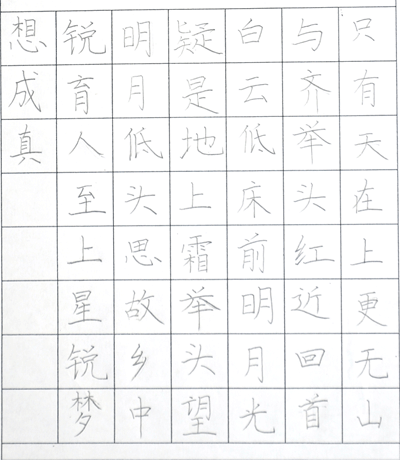 只有天在上更无山
与齐举头红近回首
白云低床前明月光
疑是地上霜举头望
明月低头思故乡中
锐育人至上星锐梦
想成真